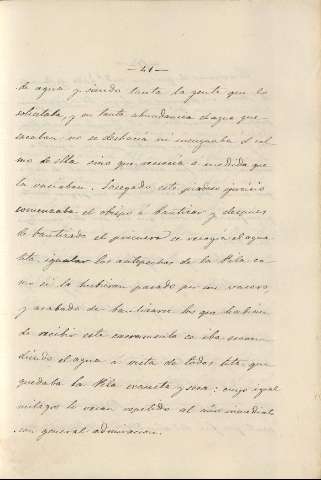 — 41 —
de agua y siendo tanta la gente que lo
solicitaba, y en tanta abundancia el agua que
sacaban no se deshacia ni menguaba el col-
mo de ella sino que crecia a medida que
la vaciaban. Sosegado este piadoso
comenzaba el obispo á bautizar y despues
de bautizado el primero se recogia el agua
hta igualar los antepechos de la Pila co-
mo si la hubieran pasado por un rasero
y acabado de bautizarse los que habian
de recibir este sacramento se iba
diendo el agua á vista de todos hta que
quedaba la Pila exausta y seca: cuyo igual
milagro lo veian repetido al año inmediato
con general admiracion.